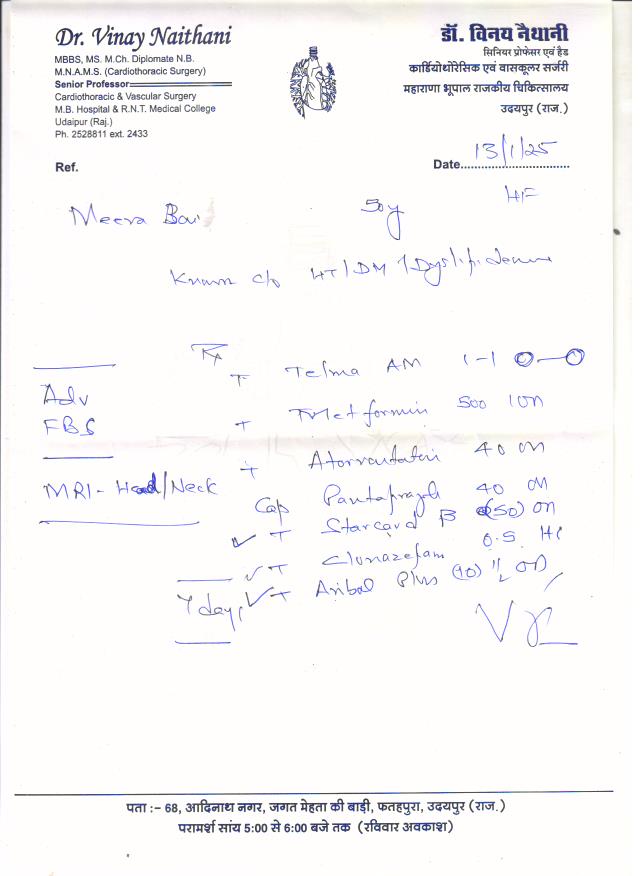 Dr. Vinay Naithani
MBBS, MS. M.Ch. Diplomate N.B.
M.N.A.M.S. (Cardiothoracic Surgery)
Senior Professor
Cardiothoracic & Vascular Surgery
M.B. Hospital & R.N.T. Medical College
Udaipur (Raj.)
Ph. 2528811 ext. 2433
डॉ. विनय नैथानी
सिनियर प्रोफेसर एवं हैड
कार्डियोथोरेसिक एवं वासकूलर सर्जरी
महाराणा भूपाल राजकीय चिकित्सालय
उदयपुर (राज.)
Date 13/1/25
Ref.
Meera Bai 50y
Known c/o HT/DM/Dyslipidemia
Rx
T Telma AM
Adv
FBS
T Metformin 500
T Atorvastatin 40
MRI - Head/Neck
Cap Pantaprazole 40
T Starcard B (50) OD
T Clonazepam 0.5
7 days
T Plus (10) 1/2 OD
पता :- 68, आदिनाथ नगर, जगत मेहता की बाड़ी, फतहपुरा, उदयपुर (राज.)
परामर्श सांय 5:00 से 6:00 बजे तक (रविवार अवकाश)